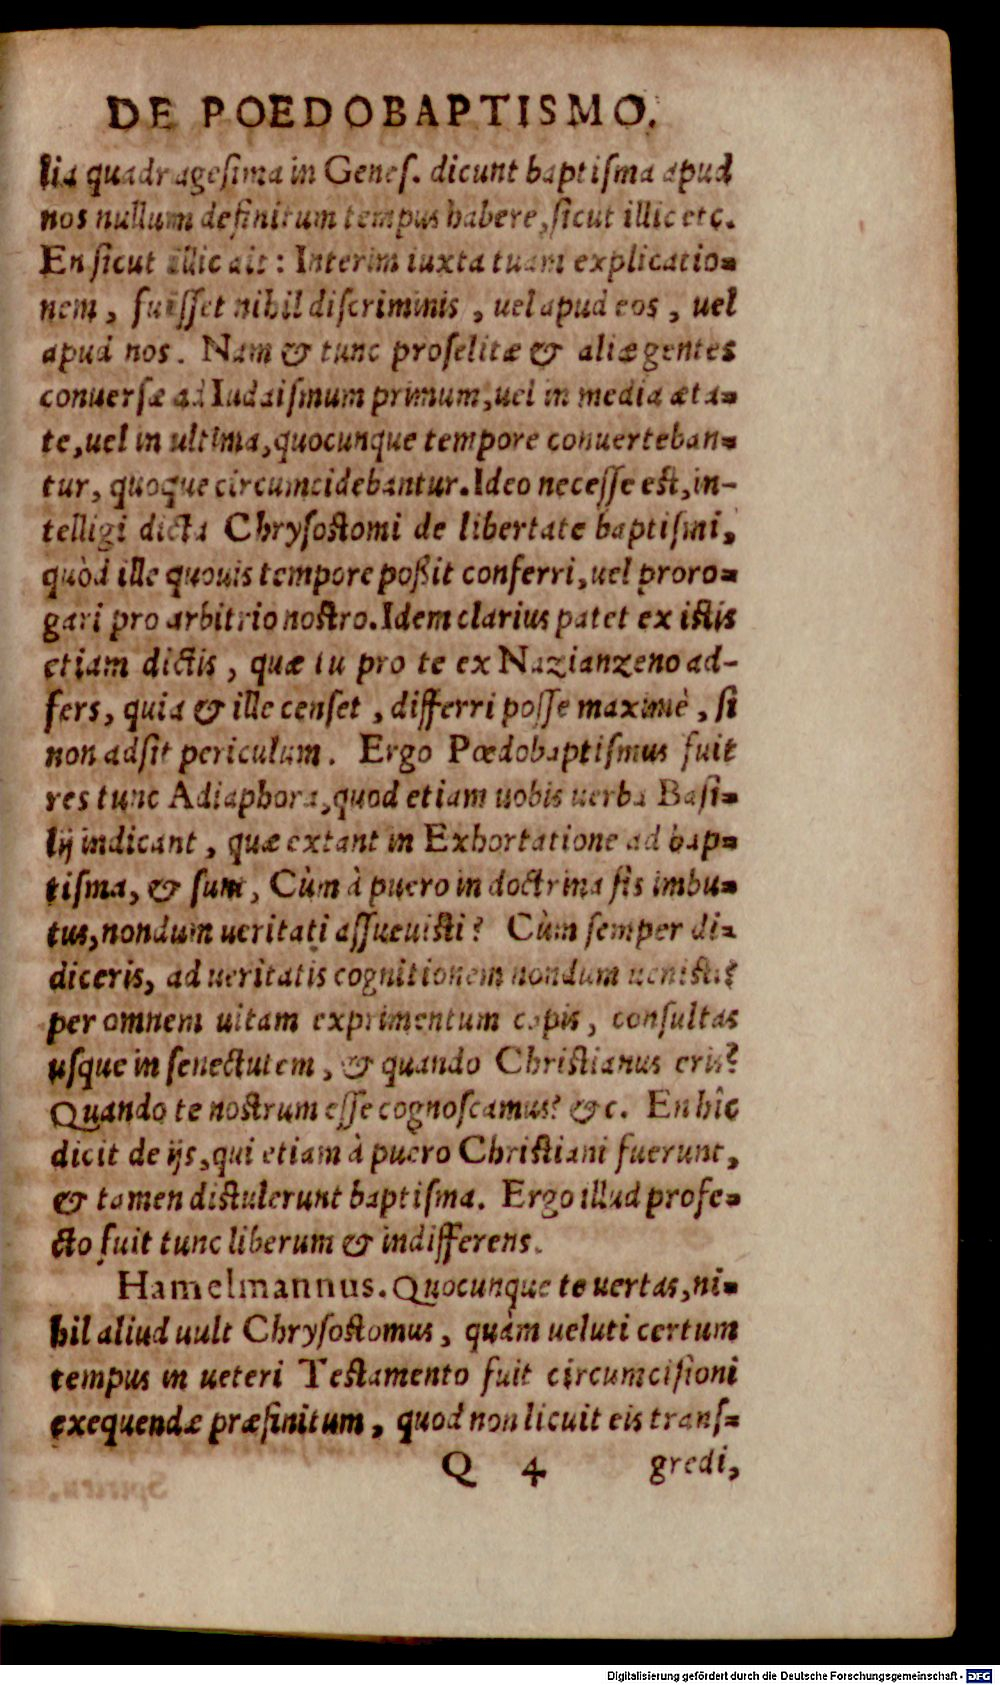 DE POEDOBAPTISMO.
lia quadragesima in Genes. dicunt baptisma apud
nos nullum definitum tempus habere, sicut illic etc.
En sicut illic ait: Interim iuxta tuam explicatio=
nem, fuisset nihil discriminis, uel apud eos, uel
apud nos. Nam & tunc proselitæ & aliæ gentes
conuersæ ad Iudaismum primum, uel in media æta=
te, uel in ultima, quocunque tempore conuerteban=
tur, quoque circumcidebantur. Ideo necesse est, in-
telligi dicta Chrysostomi de libertate baptismi,
quòd ille quouis tempore poßit conferri, uel proro=
gari pro arbitrio nostro. Idem clarius patet ex istis
etiam dictis, quæ tu pro te ex Nazianzeno ad-
fers, quia & ille censet, differri posse maximè, si
non adsit periculum. Ergo Pœdobaptismus fuit
res tunc Adiaphora, quod etiam uobis uerba Basi=
lij indicant, quæ extant in Exhortatione ad bap=
tisma, & sunt, Cùm à puero in doctrina sis imbu=
tus, nondum ueritati assueuisti? Cùm semper di=
diceris, ad ueritatis cognitionem nondum uenisti?
per omnem uitam exprimentum capis, consultas
usque in senectutem, & quando Christianus eris?
Quando te nostrum esse cognoscamus? &c. En hîc
dicit de ijs, qui etiam à puero Christiani fuerunt,
& tamen distulerunt baptisma. Ergo illud profe=
cto fuit tunc liberum & indifferens.
Hamelmannus. Quocunque te uertas, ni=
hil aliud uult Chrysostomus, quàm ueluti certum
tempus in ueteri Testamento fuit circumcisioni
exequendæ præfinitum, quod non licuit eis trans=
Q 4 gredi,
Digitalisierung gefördert durch die Deutsche Forschungsgemeinschaft - DFG